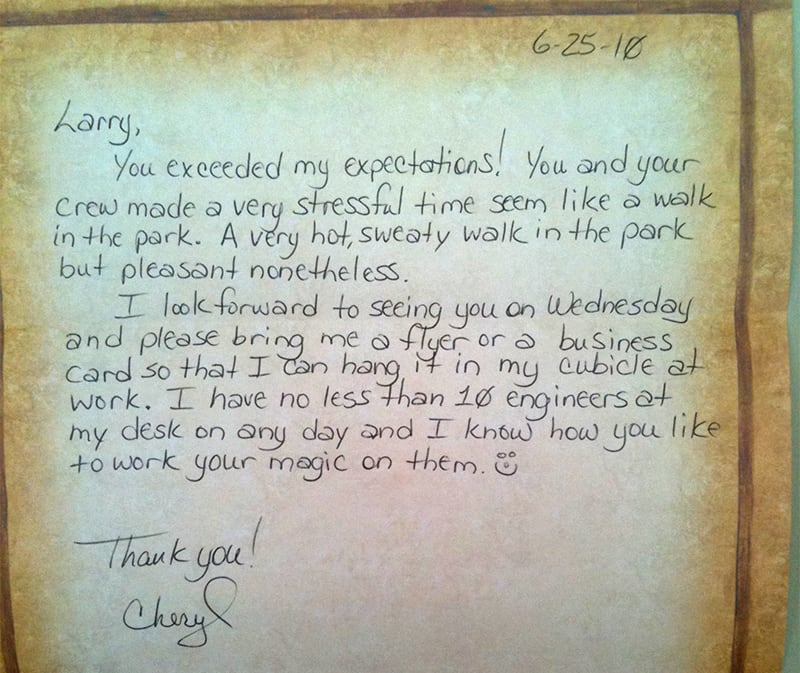 6-25-10
Larry,
You exceeded my expectations! You and your
crew made a very stressful time seem like a walk
in the park. A very hot, sweaty walk in the park
but pleasant nonetheless.
I look forward to seeing you on Wednesday
and please bring me a flyer or a business
card so that I can hang it in my cubicle at
work. I have no less than 10 engineers at
my desk on any day and I know how you like
to work your magic on them. ☺
Thank you!
Cheryl